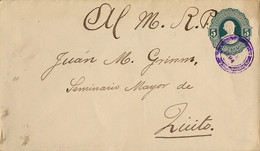 Al M. R. P.
Juán M. Grimm,
Seminario Mayor de
Quito.
5 5